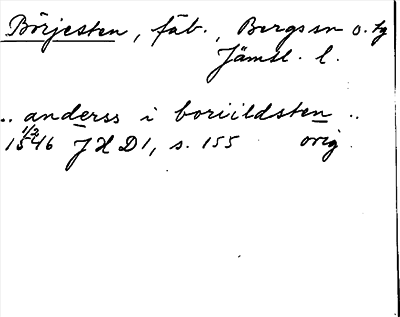 Börjesten, fäb., Bergs sn o. tg
Jämtl. l.
.. anderss i boriildsten ..
1/3
1546 JHD1, s. 155 orig.